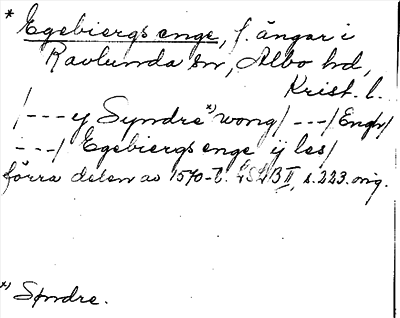 * Egebiergs enge, f. ängar i
Ravlunda sn, Albo hd,
Krist. l.
/--- y Syndre *) wong/ ---/Engr/
---/ Egebiergs enge ij les/
förra delen av 1570-t. LSLB II, s. 223. orig.
*) Søndre.